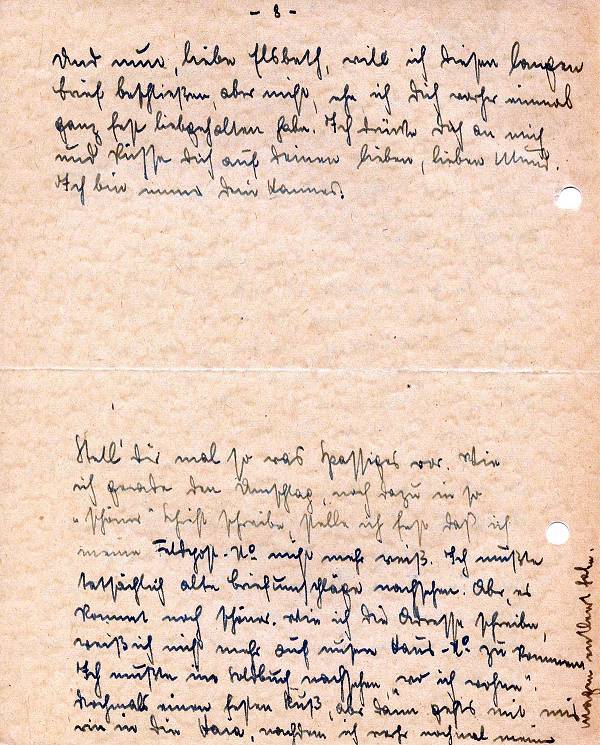 - 8 -
Und nun, liebe Elsbeth, will ich diesen langen
Brief beschließen, aber nicht, ehe ich Dich vorher einmal
ganz fest liebgehalten habe. Ich drücke Dich an mich
und küsse Dich auf Deinen lieben, lieben Mund.
Ich bin immer Dein Hannes.
Stell' Dir mal so was Spassiges vor. Wie
ich gerade den Umschlag, noch dazu in so
"schöner" Schrift schreibe, stelle ich fest daß ich
meine Feldpost-No nicht mehr weiß. Ich mußte
tatsächlich alte Briefumschläge nachsehen. Aber, es
kommt noch schöner. Wie ich die Adresse schreibe,
weiß ich nicht mehr auf unsere Haus-No zu kommen.
Ich mußte im Soldbuch nachsehen, "wo ich wohne".
Nochmals einen festen Kuß, aber dann gehts mit mir
in die, nachdem ich mehr nochmal meine
Magen entleert habe.